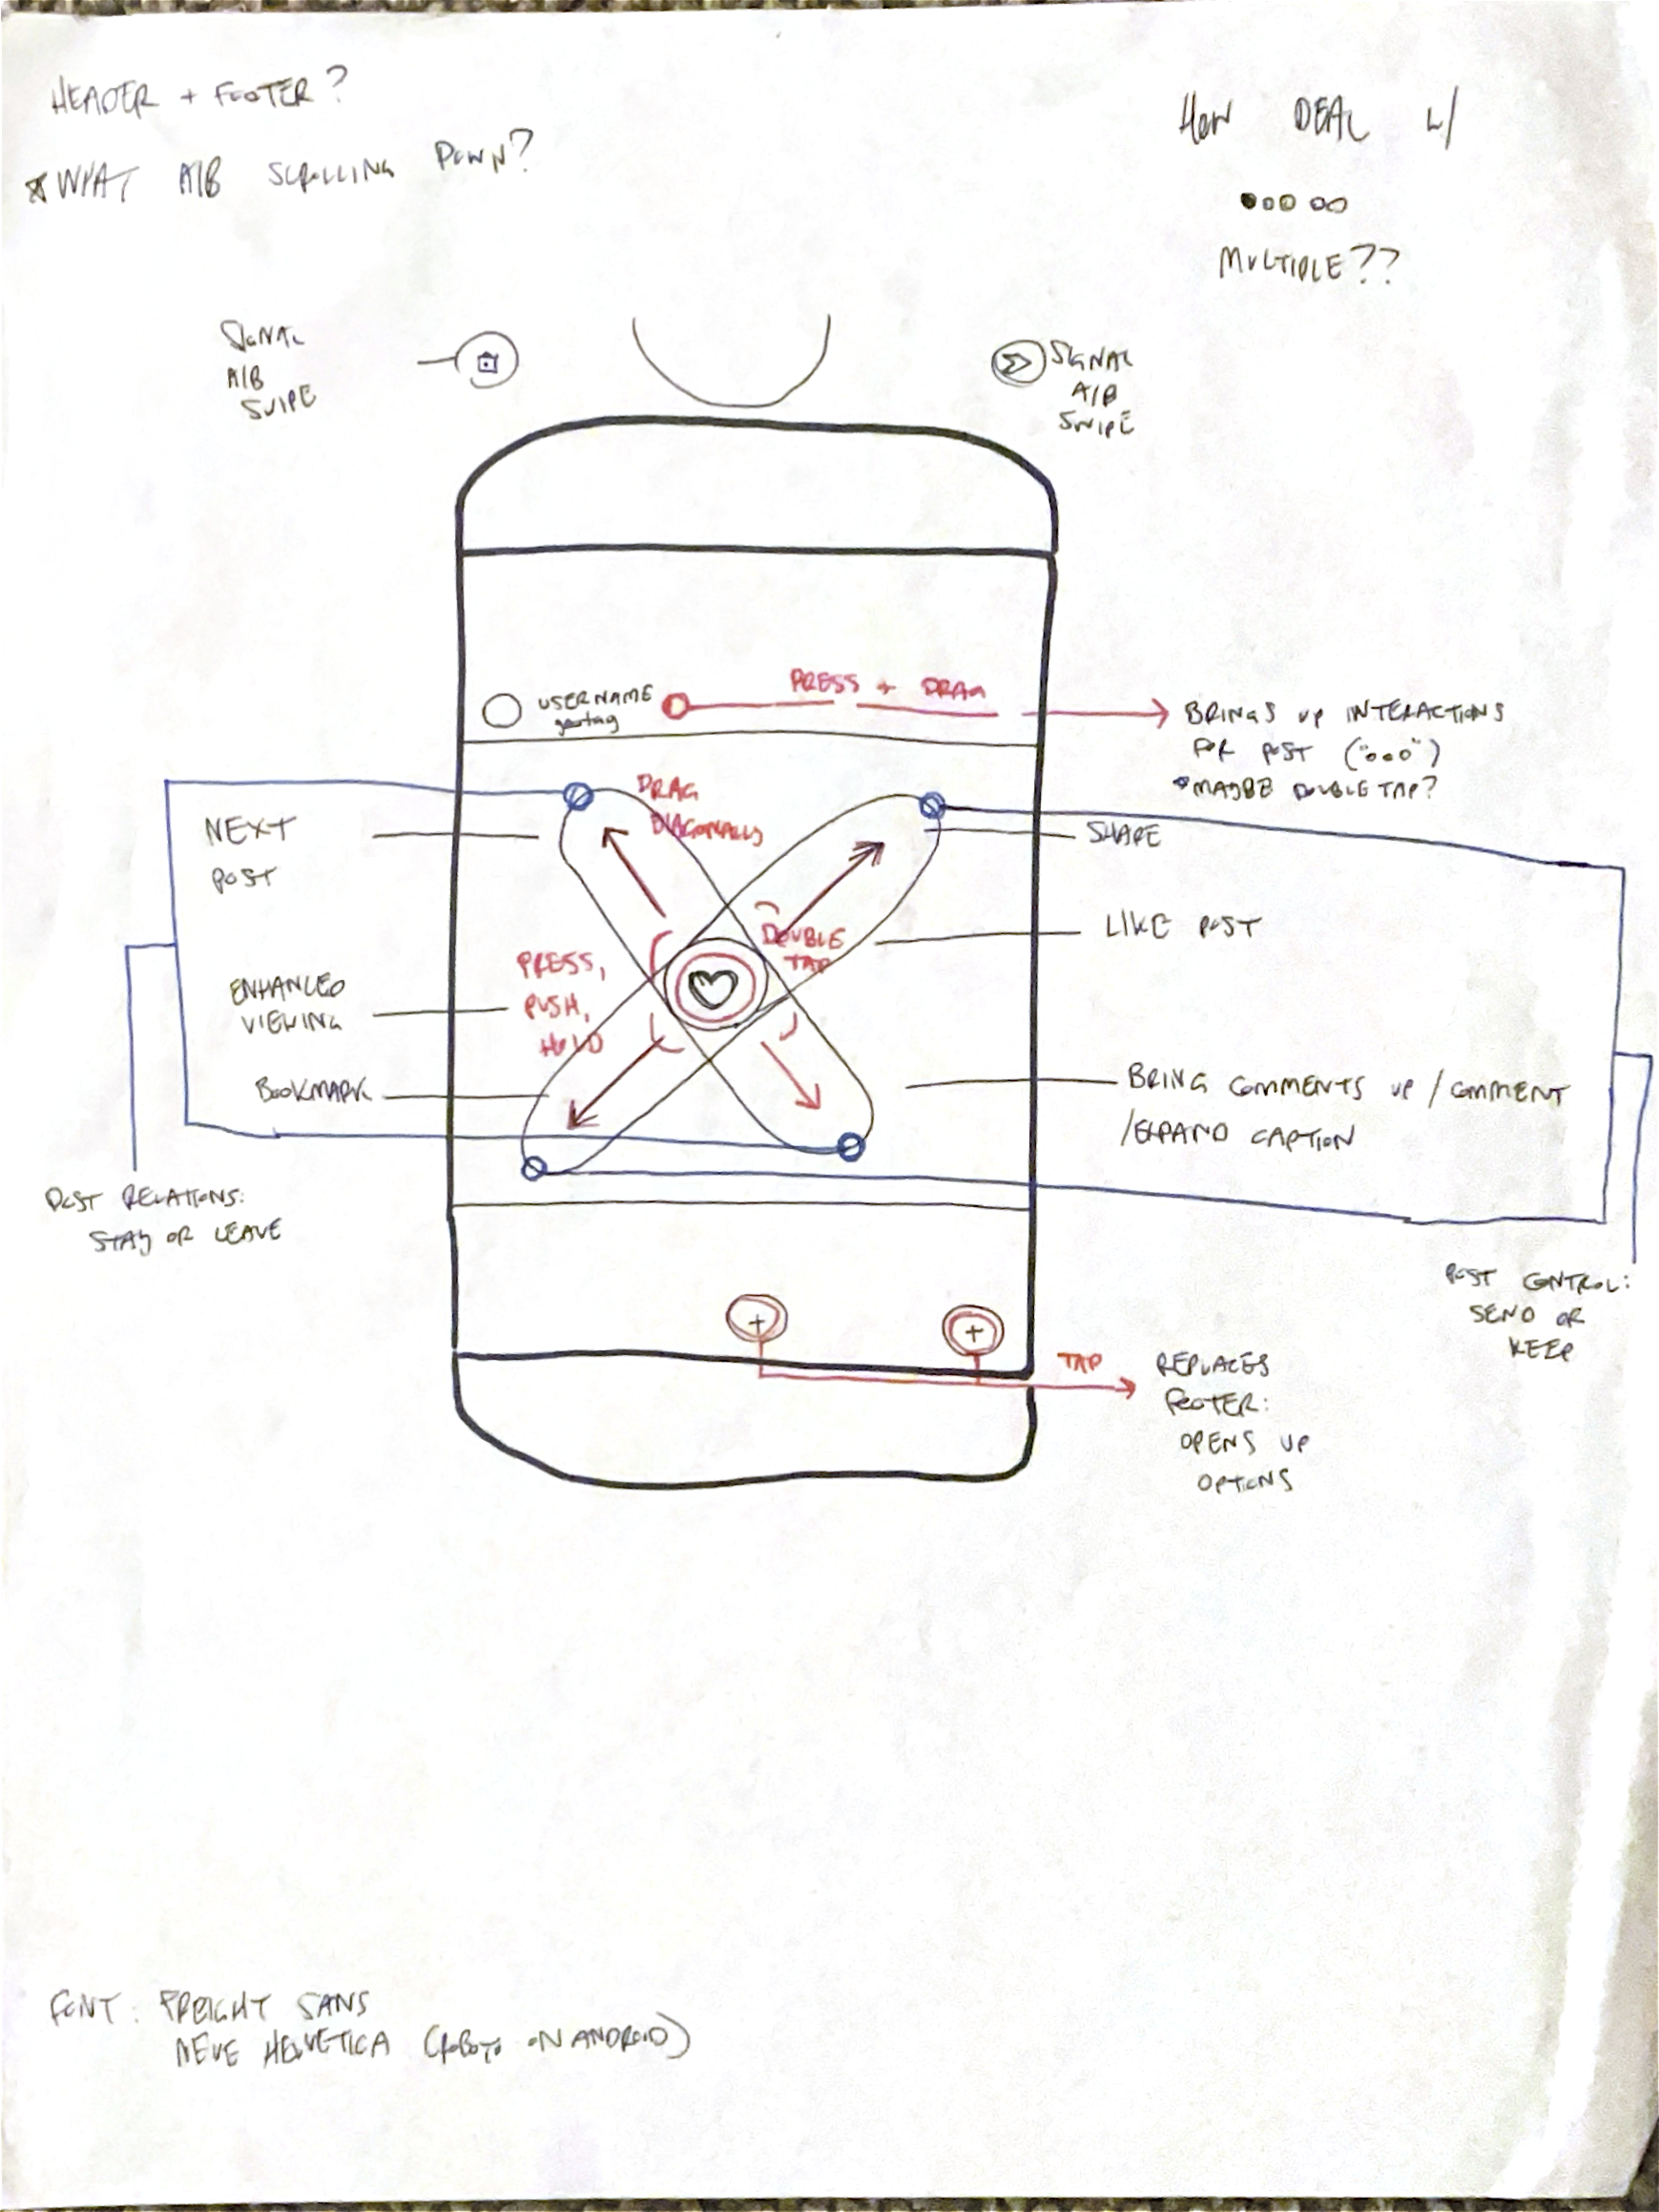 HEADER + FOOTER?
*WHAT A/B SCROLLING DOWN?
HOW DEAL W/
MULTIPLE??
SIGNAL
A/B
SWIPE
SIGNAL
A/B
SWIPE
USERNAME
geotag
PRESS + DRAG
BRINGS UP INTERACTIONS
FOR POST ("ooo")
*MAYBE DOUBLE TAP?
DRAG
DIAGONALLY
NEXT
POST
SHARE
DOUBLE
TAP
LIKE POST
PRESS,
PUSH,
HOLD
ENHANCED
VIEWING
BOOKMARK
BRING COMMENTS UP / COMMENT
/EXPAND CAPTION
POST RELATIONS:
STAY OR LEAVE
POST CONTROL:
SEND OR
KEEP
+
+
TAP
REPLACES
FOOTER:
OPENS UP
OPTIONS
FONT: FREIGHT SANS
NEUE HELVETICA (ROBOTO ON ANDROID)